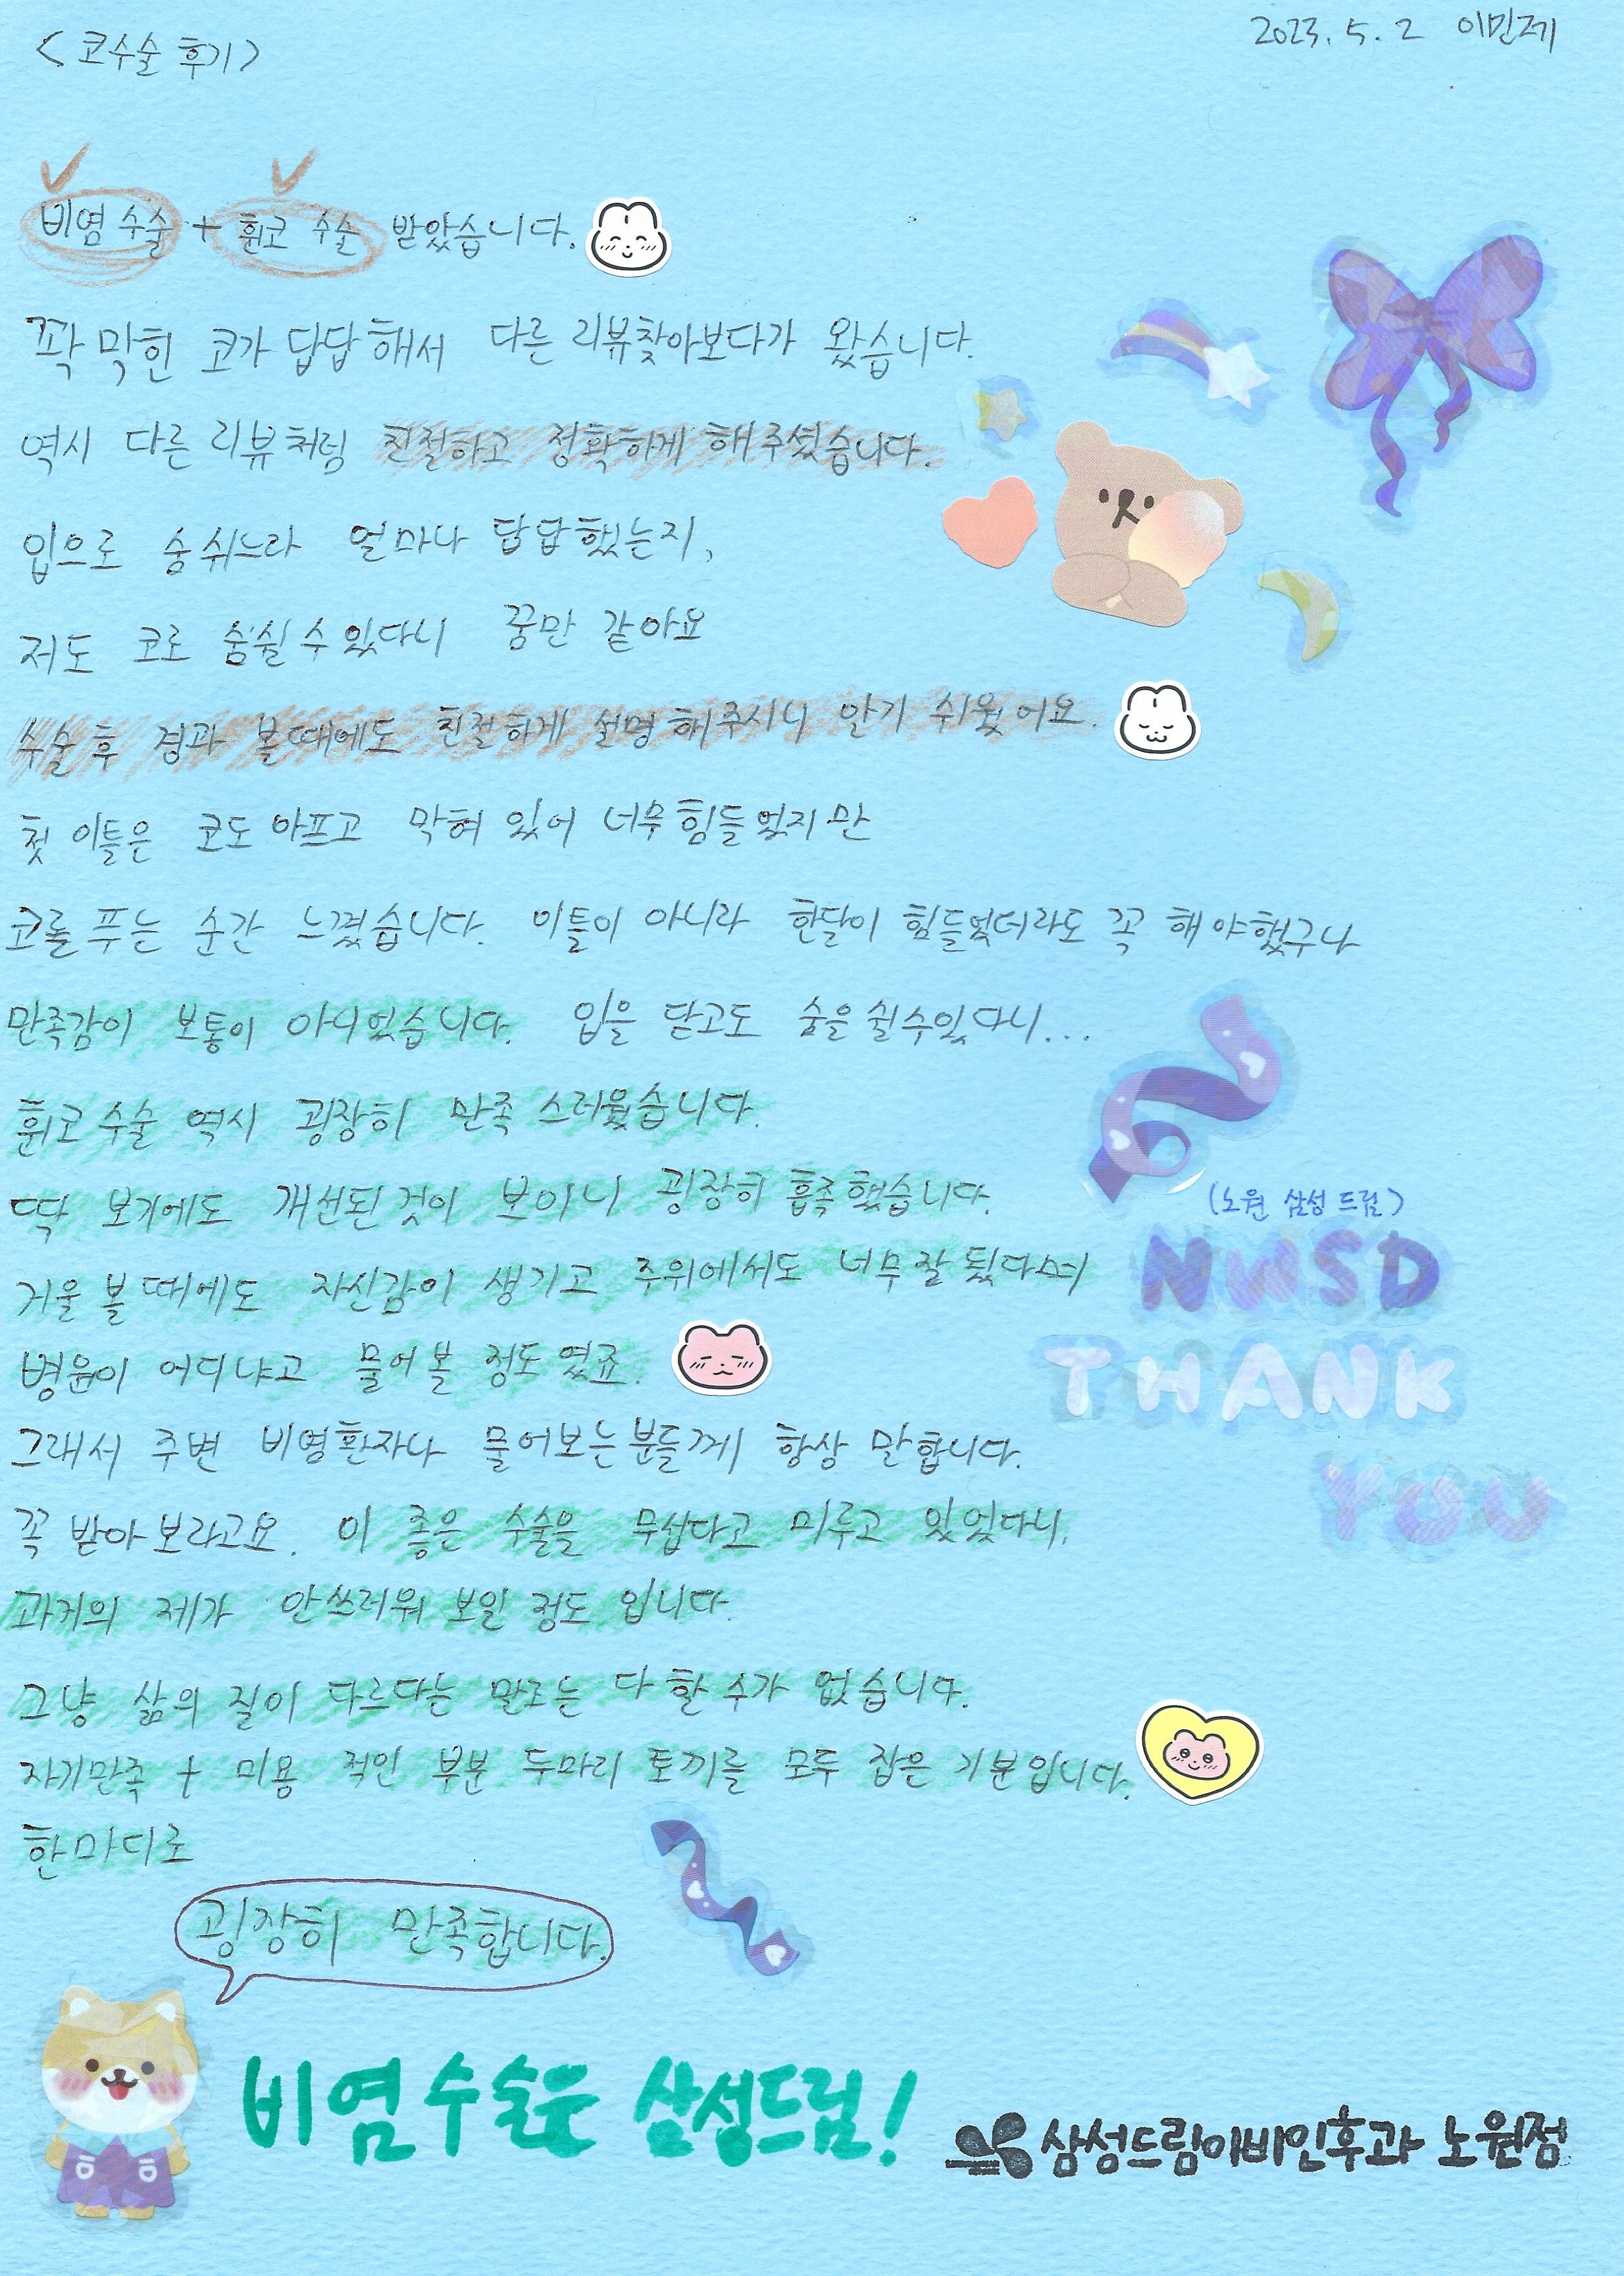 <코수술 후기>
2023. 5. 2 이민제
비염 수술 + 휜코 수술 받았습니다.
꽉 막힌 코가 답답해서 다른 리뷰찾아보다가 왔습니다.
역시 다른 리뷰처럼 친절하고 정확하게 해주셨습니다.
입으로 숨쉬느라 얼마나 답답했는지,
저도 코로 숨쉴 수 있다니 꿈만 같아요
수술 후 경과 볼때에도 친절하게 설명해주시니 알기 쉬웠어요.
첫 이틀은 코도 아프고 막혀 있어 너무 힘들었지만
코를 푸는 순간 느꼈습니다. 이틀이 아니라 한달이 힘들었더라도 꼭 해야했구나
만족감이 보통이 아니었습니다. 입을 닫고도 숨을 쉴수있다니...
휜코 수술 역시 굉장히 만족스러웠습니다.
딱 보기에도 개선된 것이 보이니 굉장히 흡족했습니다.
거울 볼 때에도 자신감이 생기고 주위에서도 너무 잘 됐다며
병원이 어디냐고 물어볼 정도였죠.
그래서 주변 비염환자나 물어보는 분들께 항상 말합니다.
꼭 받아보라고요. 이 좋은 수술을 무섭다고 미루고 있었다니,
과거의 제가 안쓰러워 보일 정도입니다.
그냥 삶의 질이 다르다는 말로는 다 할 수가 없습니다.
자기만족 + 미용적인 부분 두마리 토끼를 모두 잡은 기분입니다.
한마디로
굉장히 만족합니다.
(노원 삼성드림)
NWSD
THANK
YOU
비염수술은 삼성드림!
삼성드림이비인후과 노원점